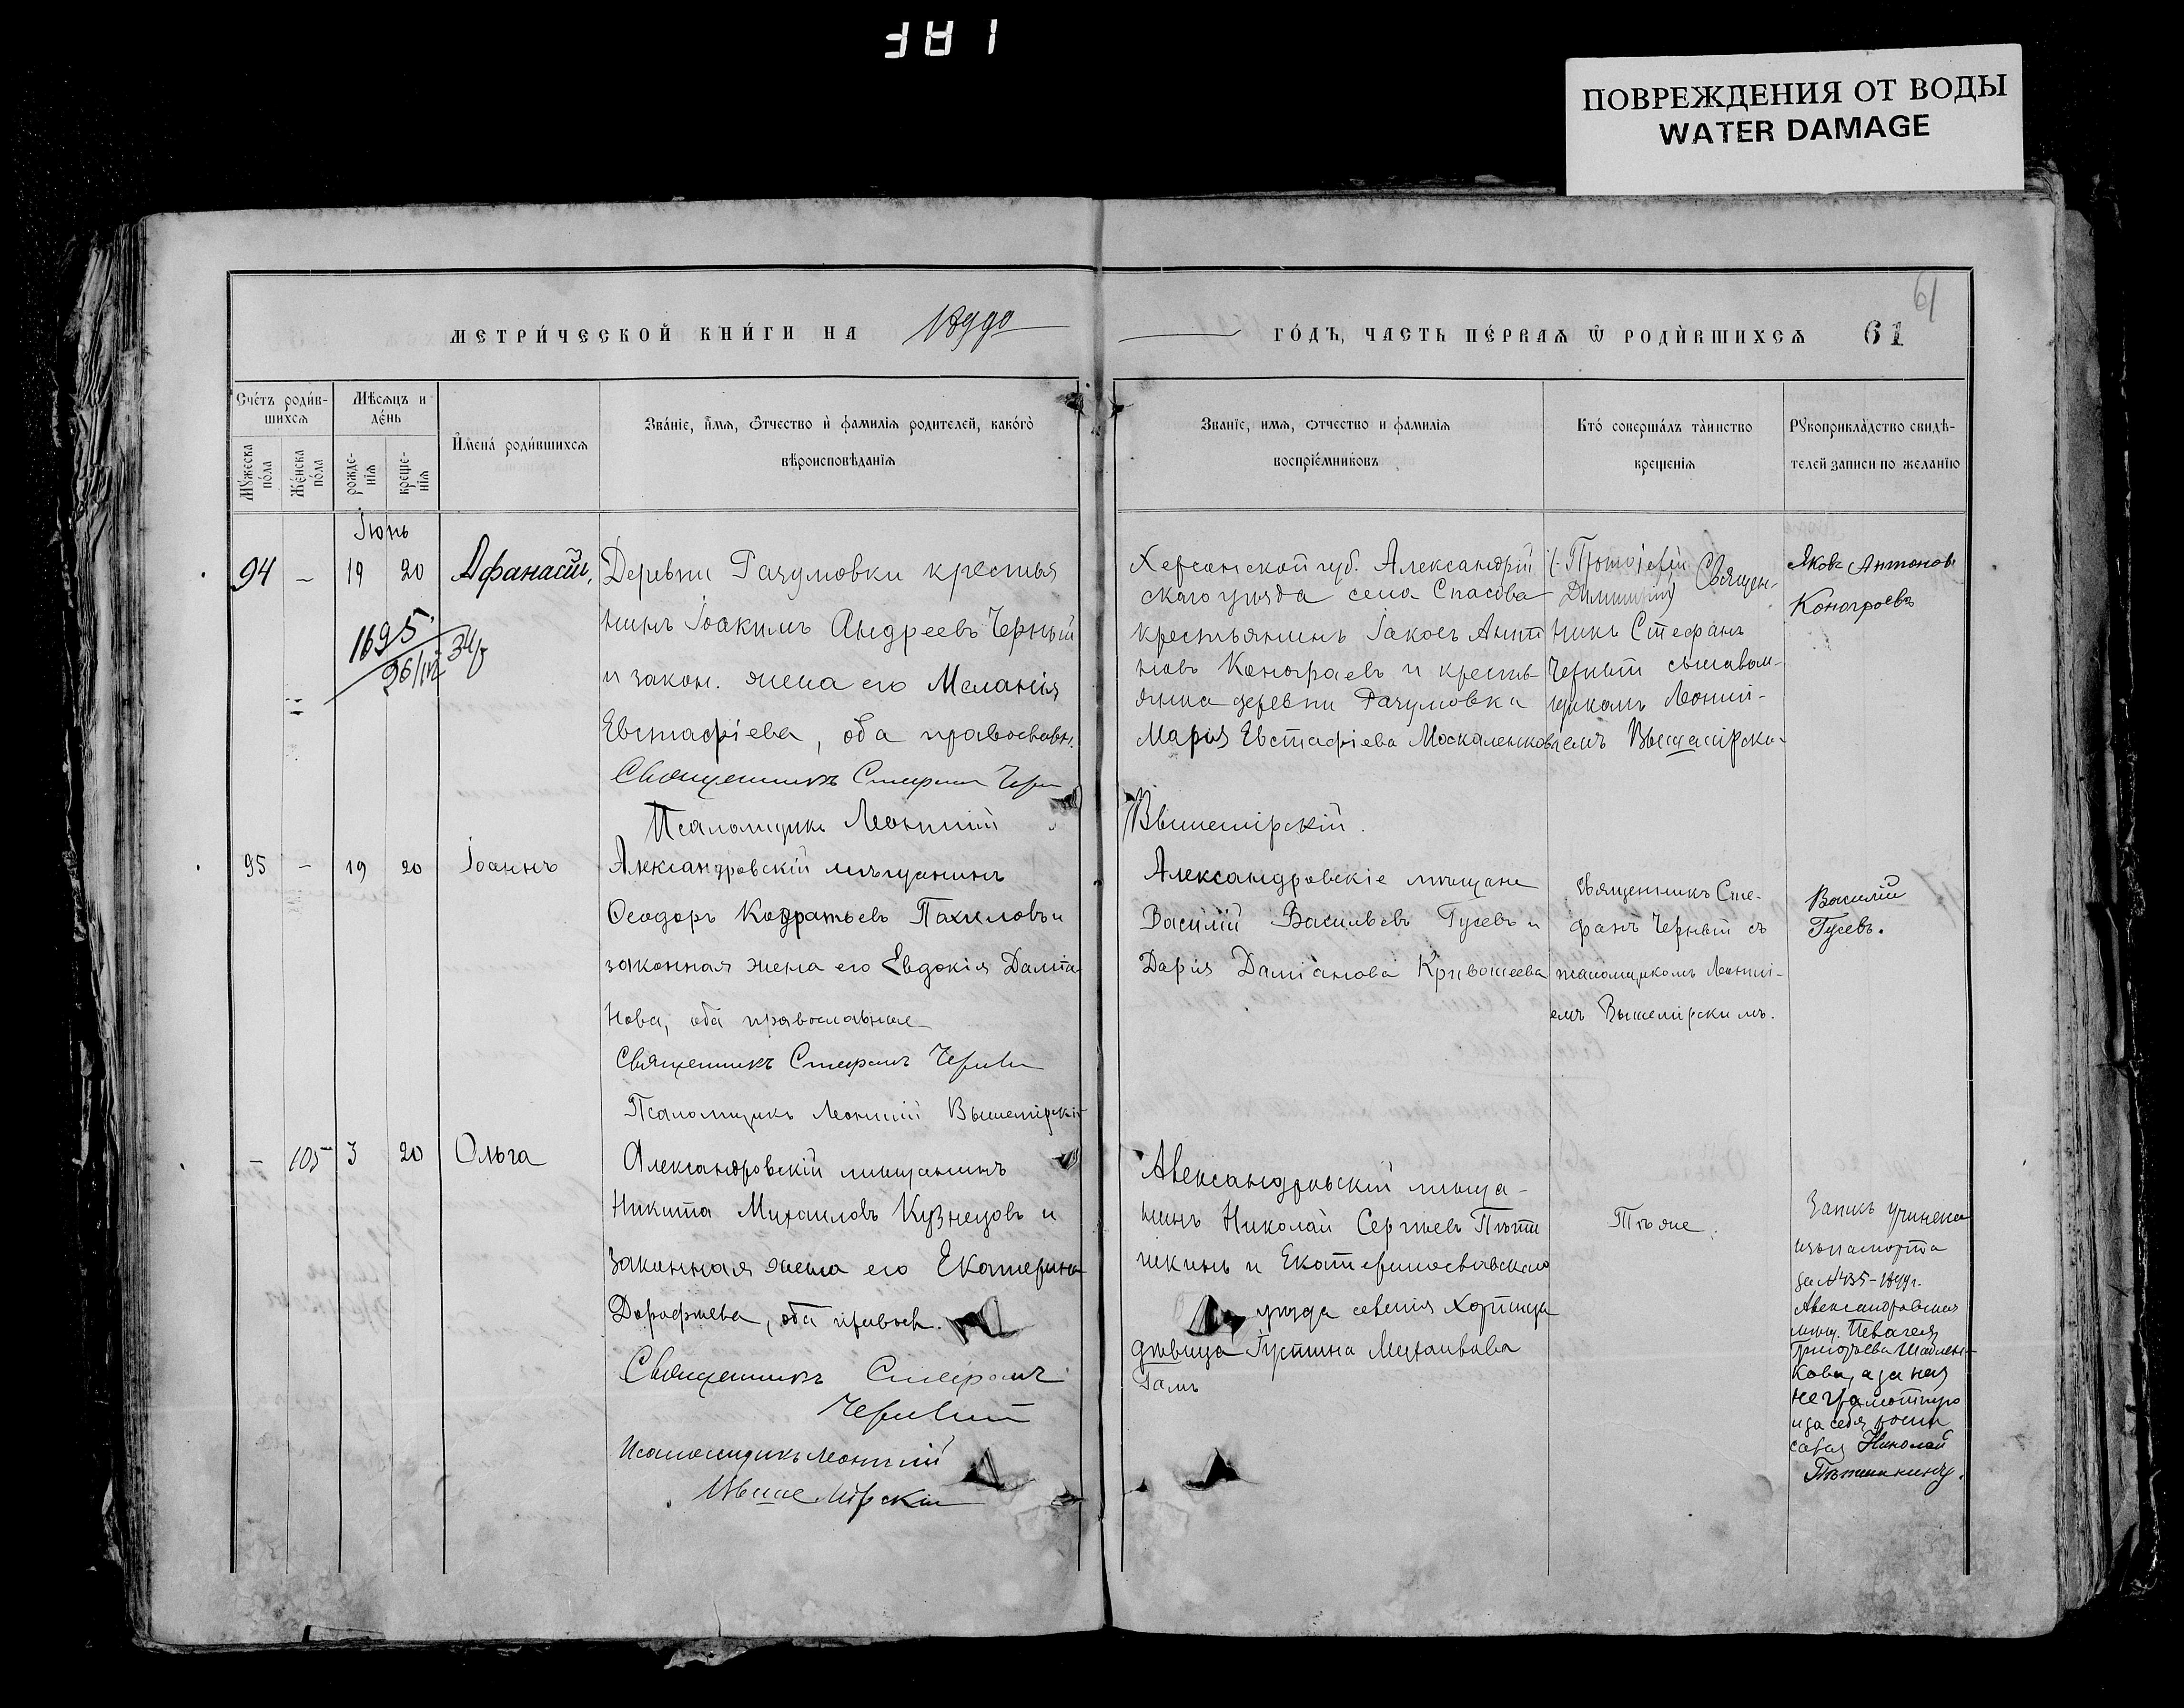 ПОВРЕЖДЕНИЯ ОТ ВОДЫ
WATER DAMAGE
61
МЕТРИ́ЧЕСКОЙ КНИ́ГИ НА 1899
ГО́ДЪ, ЧАСТЬ ПЕ́РВАѦ Ѿ РОДИ́ВШИХСѦ 61
Сче́тъ роди́в-
шихсѧ
Мꙋ́жеска по́ла
Же́нска по́ла
Мѣ́сѧцъ и
де́нь
рожде-
нїѧ
креще-
нїѧ
И҆мена́ роди́вшихсѧ
Зва́нїе, и҆́мѧ, ѻ҆́тчество и҆ фамилїѧ родителей, како́гѡ
вѣроисповѣданїѧ
Званїе, имѧ, ѻтчество и фамилїѧ
воспрїе́мниковъ
Кто́ соверша́лъ та́инство
крещенїѧ
Рꙋкоприкла́дство свидѣ-
телей записи по желанїю
Іюнь
94 – 19 20 Афанасій,
1695
34/
Деревни Разумовки крестья
нинъ Іоакимъ Андреевъ Черный
и закон. жена его Меланія
Евстафіева, оба православн.
Священникъ Стефанъ Черн
Псаломщикъ Леонтий
Херсонской губ. Александрій
скаго уѣзда села Спасова
крестьянинъ Іаковъ Анто
новъ Конограевъ и кресть
янка деревни Разумовка
Марія Евстафіева Москаленкова
Вышемірскій.
Протоіерей
Димитрій Священ-
никъ Стефанъ
Черный съ псалом-
щикомъ Леонті-
емъ Вышемірски-
Яковъ Антоновъ
Конограевъ
95 – 19 20 Іоаннъ
Александровскій мѣщанинъ
Ѳеодоръ Кодратьевъ Пахиловъ и
законная жена его Евдокія Даміа
нова, оба православные
Священникъ Стефанъ Черный
Псаломщикъ Леонтій Вышемірскій
Александровскіе мѣщане
Василій Васильевъ Гусевъ и
Дарія Даміанова Кривошеева
Священникъ Сте-
фанъ Черный съ
псаломщикомъ Леонті-
емъ Вышемірскимъ.
Василій
Гусевъ.
– 105 3 20 Ольга
Александровскій мѣщанинъ
Никита Михаиловъ Кузнецовъ и
законная жена его Екатерина
Дорофѣева, оба правосл.
Священникъ Стефанъ
Черный
Псаломщикъ Леонтій
Вышемірскій
Александровскій мѣща-
нинъ Николай Сергѣевъ Пѣту
шкинъ и Екатеринославскаго
уѣзда селенія Хортица
дѣвица Іустина Михаилова
Гамъ
Тѣ же.
Запись учинена
изъ паспорта
за № 435 – 1899 г.
Александровская
мѣщ. Пелагея
Григорьева Шаблен-
кова, а за нея
неграмотную
и за себя роспи
сался Николай
Пѣтушкинъ.